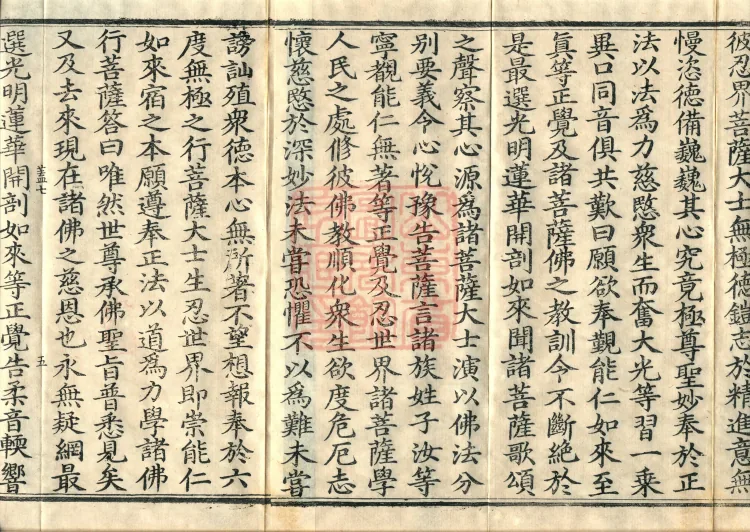 彼忍界菩薩大士無極德鎧志於精進意無
慢恣德備巍巍其心究竟極尊聖妙奉於正
法以法爲力慈愍衆生而奮大光等習一乘
異口同音俱共歎曰願欲奉覲能仁如來至
眞等正覺及諸菩薩佛之教訓令不斷絕於
是最選光明蓮華開剖如來聞諸菩薩歌頌
之聲察其心源爲諸菩薩大士演以佛法分
別要義令心悅豫告菩薩言諸族姓子汝等
寧觀能仁無著等正覺及忍世界諸菩薩學
人民之處修彼佛教順化衆生欲度危厄志
懷慈愍於深妙法未嘗恐懼不以爲難未嘗
謗訕殖衆德本心無所著不望想報奉於六
度無極之行菩薩大士生忍世界即崇能仁
如來宿之本願遵奉正法以道爲力學諸佛
行菩薩答曰唯然世尊承佛聖旨普悉見矣
又及去來現在諸佛之慈恩也永無疑網最
蓋七 五
選光明蓮華開剖如來等正覺告柔音輭響